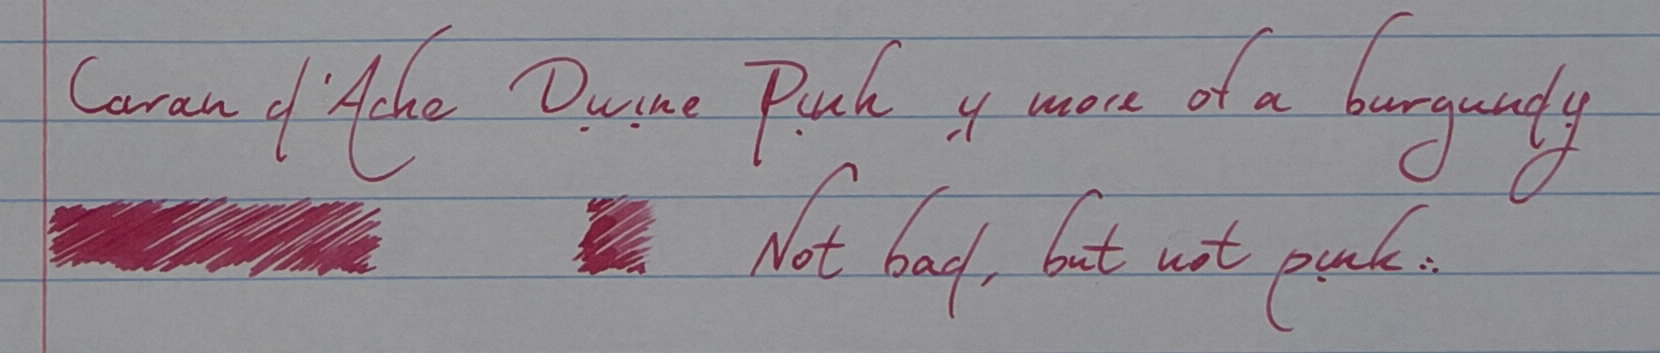 Caran d'Ache Divine Pink is more of a burgundy
Not bad, but not pink.